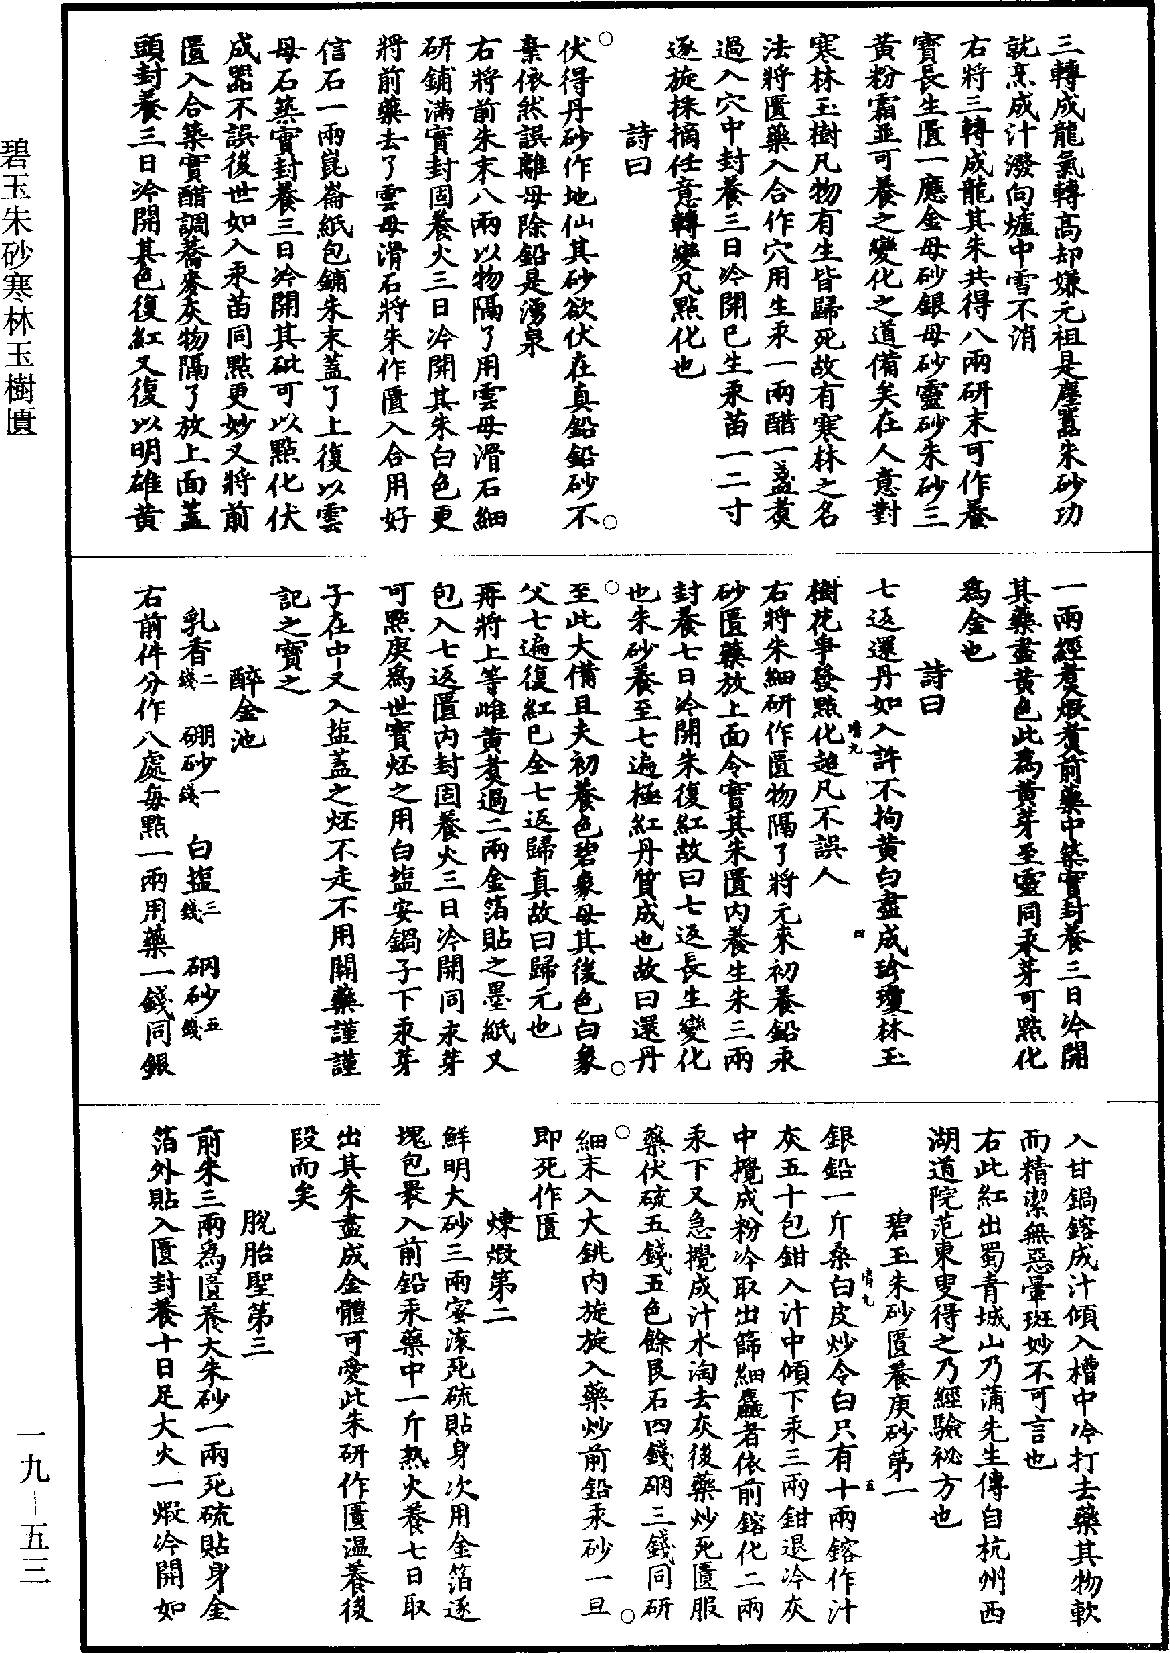 三轉成龍氣轉高却嫌元祖是塵囂朱砂功
就烹成汁潑向爐中雪不消
右將三轉成龍其朱共得八兩研末可作養
寶長生匱一應金母砂銀母砂靈砂朱砂三
黃粉霜並可養之變化之道備矣在人意對
寒林玉樹凡物有生皆歸死故有寒林之名
法將匱藥入合作穴用生汞一兩醋一盞煑
過入穴中封養三日冷開已生汞苗一二寸
逐旋採摘任意轉變凡點化也
詩曰
伏得丹砂作地仙其砂欲伏在真鉛鉛砂不
棄依然誤離母除鉛是湧泉
右將前朱末八兩以物隔了用雲母滑石細
研鋪滿實封固養火三日冷開其朱白色更
將前藥去了雲母滑石將朱作匱入合用好
信石一兩崑崙紙包鋪朱末蓋了上復以雲
母石築實封養三日冷開其砒可以點化伏
成器不誤後世如入汞苗同點更妙又將前
匱入合築實醋調蕎麥灰物隔了放上面蓋
頭封養三日冷開其色復紅又復以明雄黃
一兩經煑煅煑前藥中築實封養三日冷開
其藥盡黃色此為黃芽至靈同汞芽可點化
為金也
詩曰
七返還丹如入許不拘黃白盡成珍瓊林玉
樹花爭發點化超凡不誤人
右將朱細研作匱物隔了將元來初養鉛汞
砂匱藥放上面令實其朱匱內養生朱三兩
封養七日冷開朱復紅故曰七返長生變化
也朱砂養至七遍極紅丹質成也故曰還丹
至此大備且夫初養色碧象母其後色白象
父七遍復紅已全七返歸真故曰歸元也
再將上等雌黃煑過二兩金箔貼之墨紙又
包入七返匱內封固養火三日冷開同汞芽
可點庚為世寶坯之用白塩安鍋子下汞芽
子在中又入塩蓋之坯不走不用關藥謹謹
記之寶之
醉金池
乳香二錢 硼砂一錢 白塩三錢 硇砂五錢
右前件分作八處每點一兩用藥一錢同銀
入甘鍋鎔成汁傾入槽中冷打去藥其物軟
而精潔無惡暈斑妙不可言也
右此紅出蜀青城山乃蒲先生傳自杭州西
湖道院范東叟得之乃經驗祕方也
碧玉朱砂匱養庚砂第一
銀鉛一斤桑白皮炒令白只有十兩鎔作汁
灰五十包鉗入汁中傾下汞三兩鉗退冷灰
中攪成粉冷取出篩細麤者依前鎔化二兩
汞下又急攪成汁水淘去灰後藥炒死匱服
藥伏硫五錢五色餘艮石四錢硇三錢同研
細末入大銚內旋旋入藥炒前鉛汞砂一旦
即死作匱
煉煅第二
鮮明大砂三兩蜜滚死硫貼身次用金箔逐
塊包褁入前鉛汞藥中一斤熟火養七日取
出其朱盡成金體可愛此朱研作匱温養後
段而矣
脫胎聖第三
前朱三兩為匱養大朱砂一兩死硫貼身金
箔外貼入匱封養十日足大火一煅冷開如
碧玉朱砂寒林玉樹匱
一九—五三